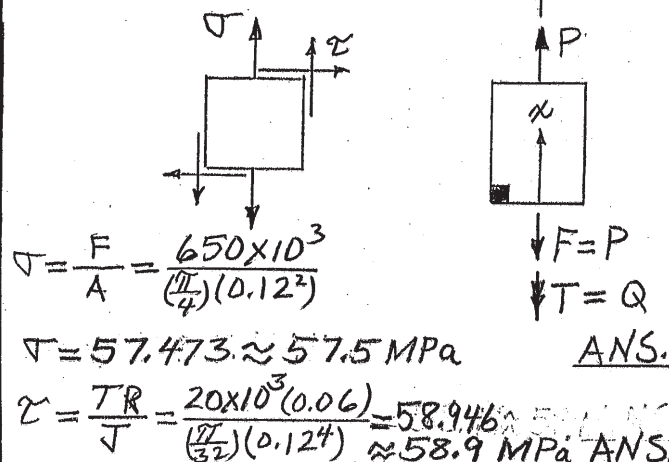 σ τ P
x
σ = F/A = 650×10³/(π/4)(0.12²)
F=P
T=Q
σ = 57.473 ≈ 57.5 MPa ANS.
τ = TR/J = 20×10³(0.06)/(π/32)(0.12⁴) = 58.946
≈ 58.9 MPa ANS